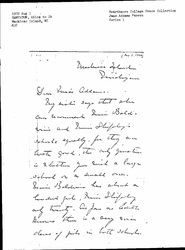 1906 Aug 1
HAMILTON, Alice to JA
Mackinac Island, MI
ALS
Swarthmore College Peace Collection
Jane Addams Papers
Series 1
Mackinac Island
Michigan
Dear Miss Addams.
My sister says that she
can recommend Miss Bald-
win's and Miss Shipley's
schools equally, for they are
both good, the only question
is whether you wish a large
school or a small one.
Miss Baldwin has about a
hundred girls, Miss Shipley
only twenty. As far as Edith
knows there is a very nice
class of girls in both schools.